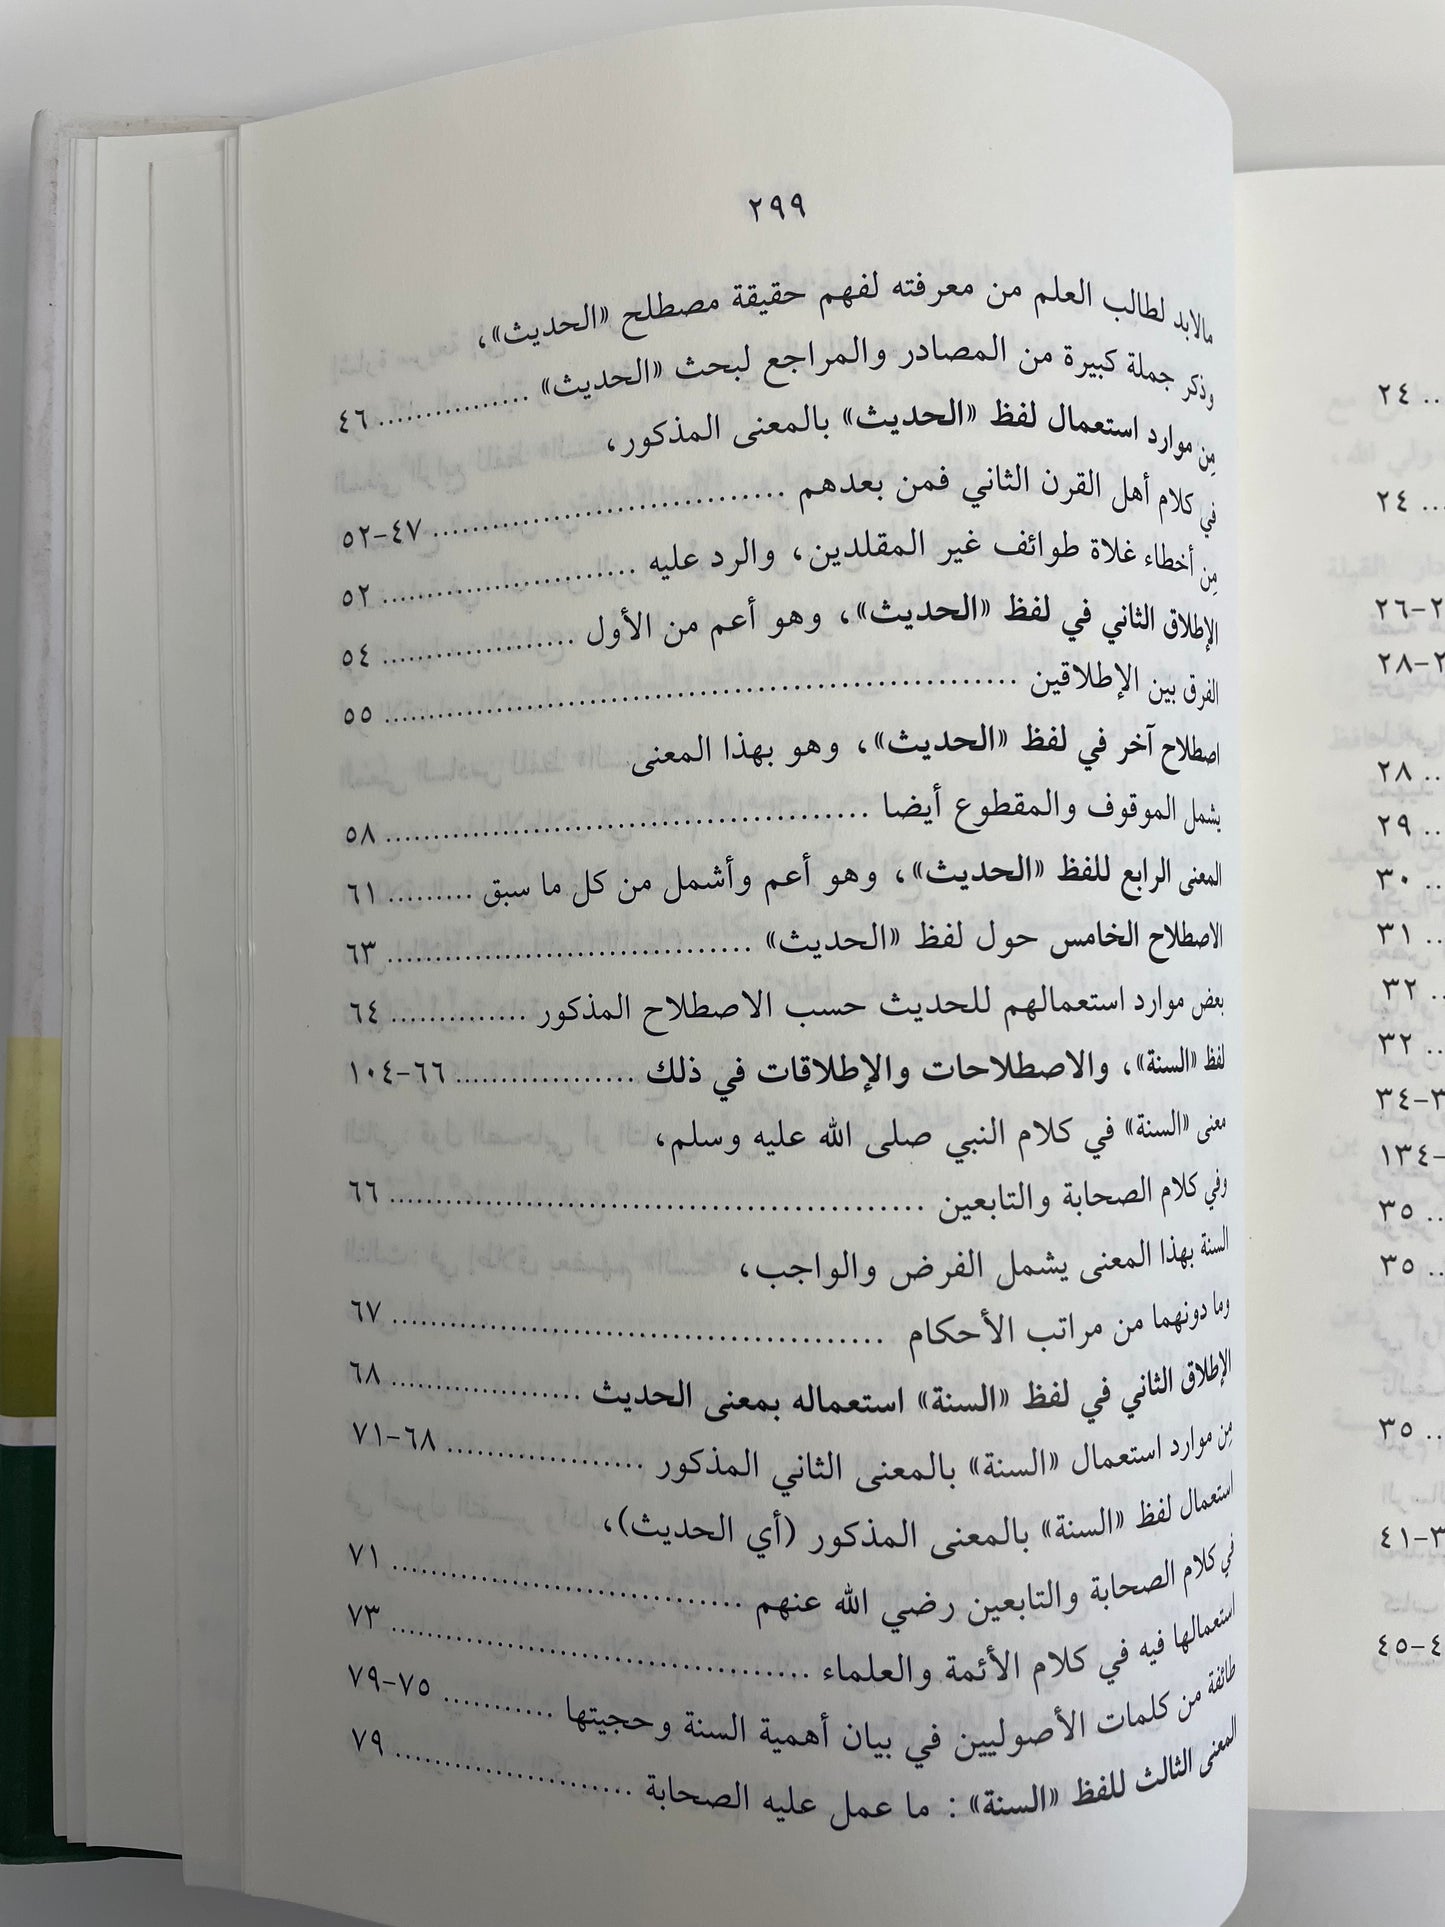 ٢٩٩
مالابد لطالب العلم من معرفته لفهم حقيقة مصطلح «الحديث»،
وذكر جملة كبيرة من المصادر والمراجع لبحث «الحديث» ................ ٤٦
مِن موارد استعمال لفظ «الحديث» بالمعنى المذكور،
في كلام أهل القرن الثاني فمن بعدهم .................................... ٤٧-٥٢
مِن أخطاء غلاة طوائف غير المقلدين، والرد عليه ........................... ٥٢
الإطلاق الثاني في لفظ «الحديث»، وهو أعم من الأول ..................... ٥٤
الفرق بين الإطلاقين ................................................................ ٥٥
اصطلاح آخر في لفظ «الحديث»، وهو بهذا المعنى
يشمل الموقوف والمقطوع أيضا ................................................ ٥٨
المعنى الرابع للفظ «الحديث»، وهو أعم وأشمل من كل ما سبق ......... ٦١
الاصطلاح الخامس حول لفظ «الحديث» ..................................... ٦٣
بعض موارد استعمالهم للحديث حسب الاصطلاح المذكور .............. ٦٤
لفظ «السنة»، والاصطلاحات والإطلاقات في ذلك .................. ٦٦-١٠٤
معنى «السنة» في كلام النبي صلى الله عليه وسلم،
وفي كلام الصحابة والتابعين ..................................................... ٦٦
السنة بهذا المعنى يشمل الفرض والواجب،
وما دونهما من مراتب الأحكام ................................................. ٦٧
الإطلاق الثاني في لفظ «السنة» استعماله بمعنى الحديث ................... ٦٨
مِن موارد استعمال «السنة» بالمعنى الثاني المذكور .................... ٦٨-٧١
استعمال لفظ «السنة» بالمعنى المذكور (أي الحديث)،
في كلام الصحابة والتابعين رضي الله عنهم ................................... ٧١
استعمالها فيه في كلام الأئمة والعلماء ......................................... ٧٣
طائفة من كلمات الأصوليين في بيان أهمية السنة وحجيتها ........... ٧٥-٧٩
المعنى الثالث للفظ «السنة» : ما عمل عليه الصحابة ........................ ٧٩
.. ٢٤
... ٢٤
٢٦-٢
٢٨-٢
.. ٢٨
.. ٢٩
.. ٣٠
.. ٣١
.. ٣٢
.. ٣٢
٣٤-٣
١٣٤-
.. ٣٥
.. ٣٥
.. ٣٥
٤١-٣
٤٥-٤